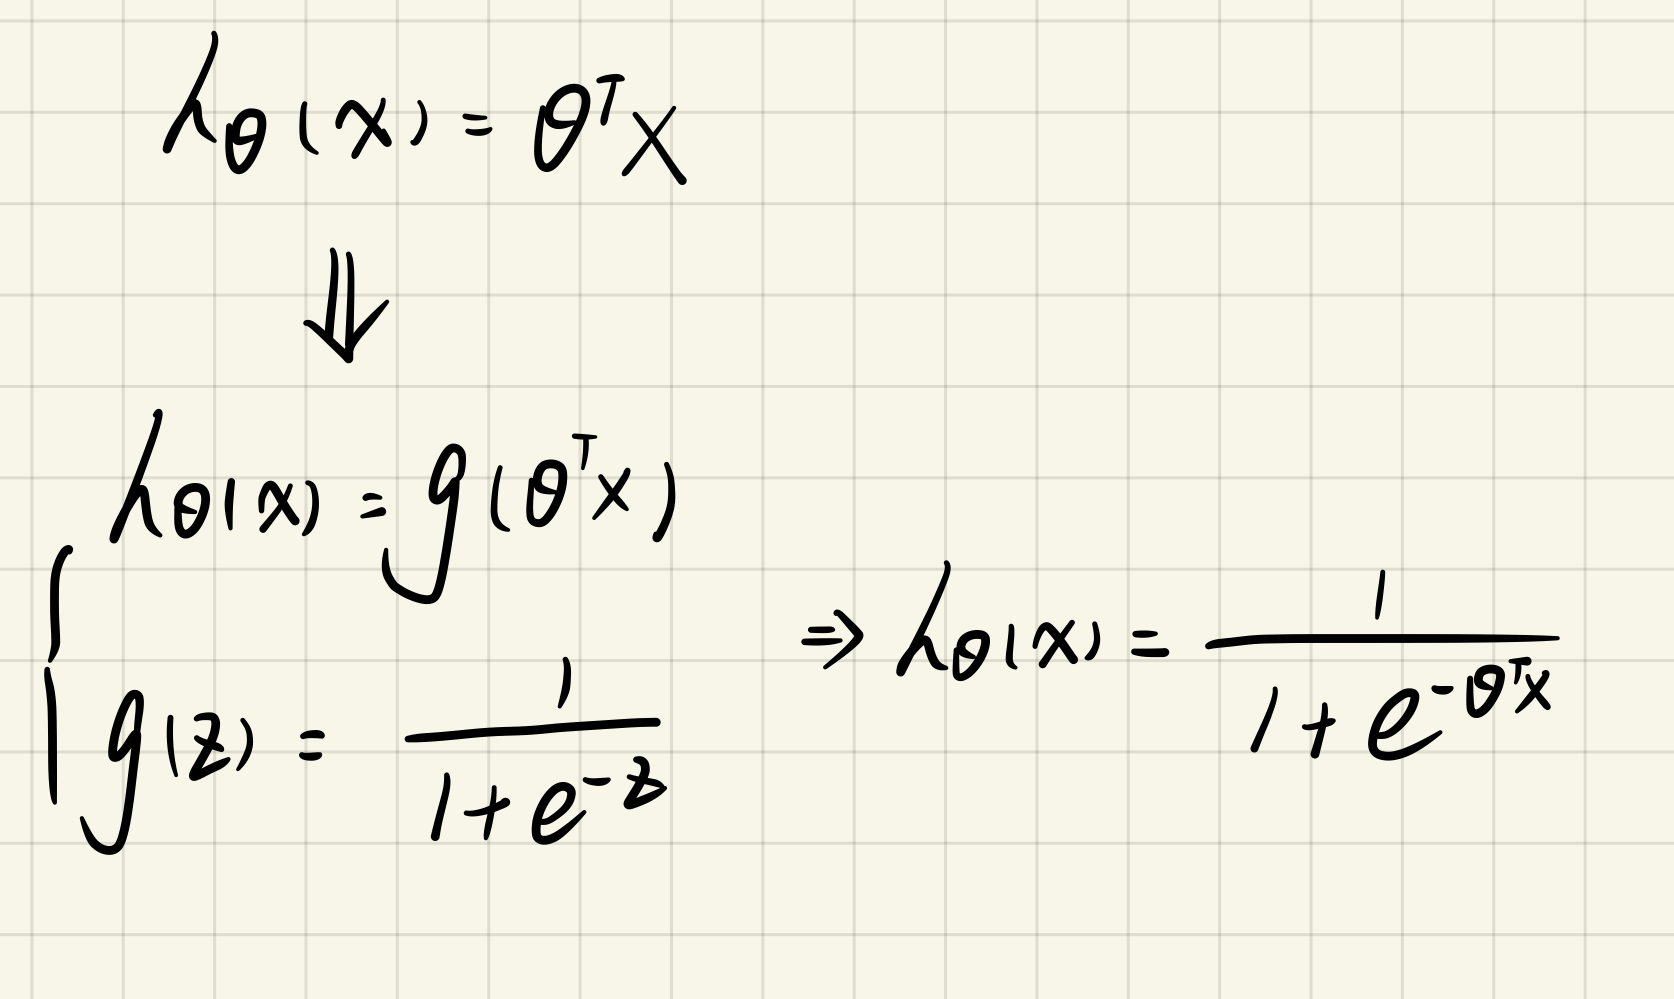 h_θ(x) = θ^T x
⇓
h_θ(x) = g(θ^T x)
g(z) = 1/(1 + e^{-z})
⇒ h_θ(x) = 1/(1 + e^{-θ^T x})